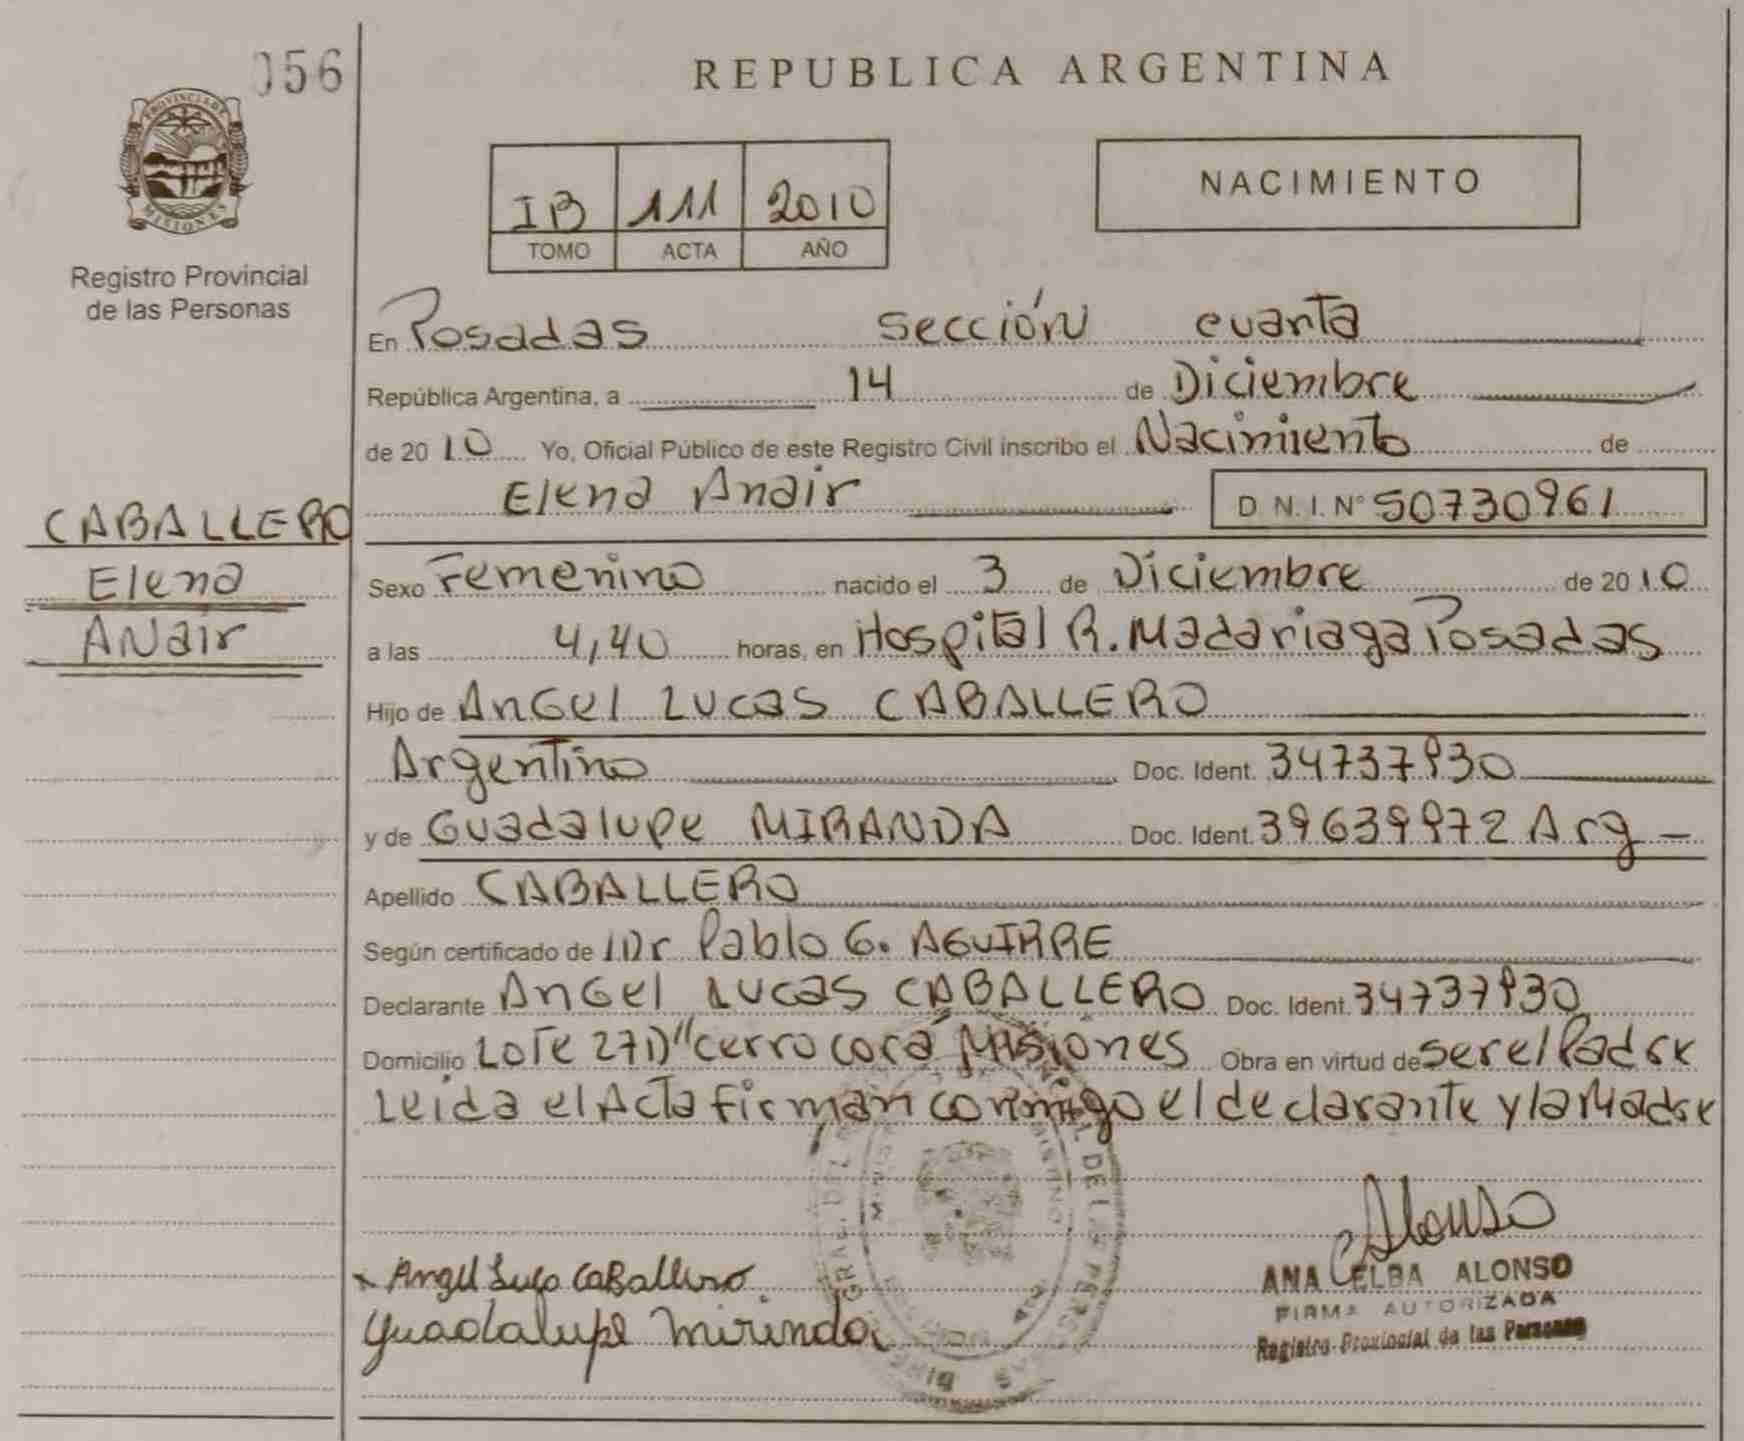 056
REPUBLICA ARGENTINA
PROVINCIA DE
MISIONES
Registro Provincial
de las Personas
IB 111 2010
TOMO ACTA AÑO
NACIMIENTO
En Posadas sección cuarta
República Argentina, a 14 de Diciembre
de 2010 Yo, Oficial Público de este Registro Civil inscribo el Nacimiento de
Elena Anair D.N.I. Nº 50730961
CABALLERO
Elena
ANair
Sexo Femenino nacido el 3 de Diciembre de 2010
a las 4,40 horas, en Hospital R. Madariaga Posadas
Hijo de Angel Lucas CABALLERO
Argentino Doc. Ident. 34737930
y de Guadalupe MIRANDA Doc. Ident. 39639972 Arg -
Apellido CABALLERO
Según certificado de Dr Pablo G. AGUIRRE
Declarante Angel Lucas CABALLERO Doc. Ident. 34737930
Domicilio Lote 27 "cerro cora Misiones Obra en virtud de ser el Padre
Leida el Acta firman conmigo el declarante y la Madre
Angel Luca Caballero
Guadalupe mirinda
Alonso
ANA CELBA ALONSO
FIRMA AUTORIZADA
Registro Provincial de las Personas